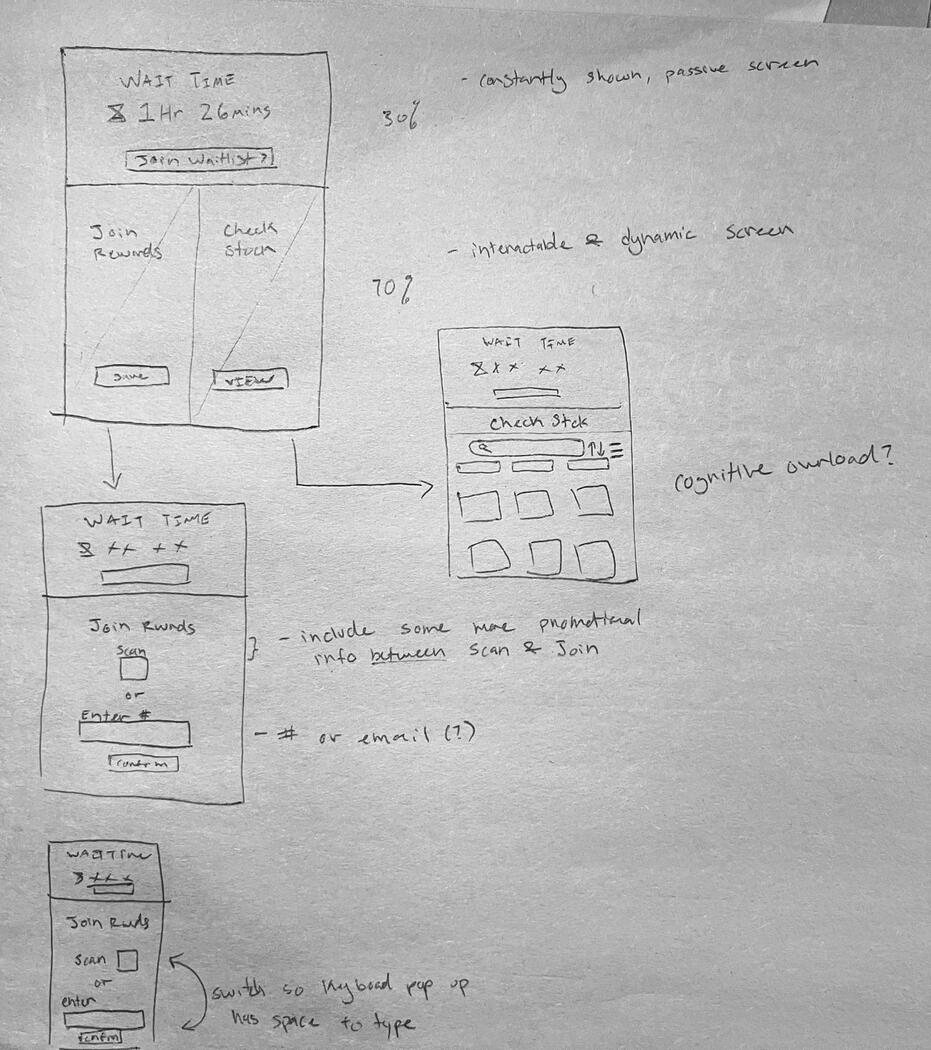 WAIT TIME
1Hr 26mins
Join Waitlist?
- constantly shown, passive screen
30%
Join
Rewards
Check
Stock
- interactable & dynamic screen
70%
Save
VIEW
WAIT TIME
x x x x
Check Stck
cognitive overload?
WAIT TIME
x x x x
Join Rwrds
Scan
or
Enter #
Confirm
- include some more promotional
info between Scan & Join
- # or email (?)
WAIT TIME
x x x
Join Rwds
Scan
or
enter
confirm
switch so keyboad pop up
has space to type